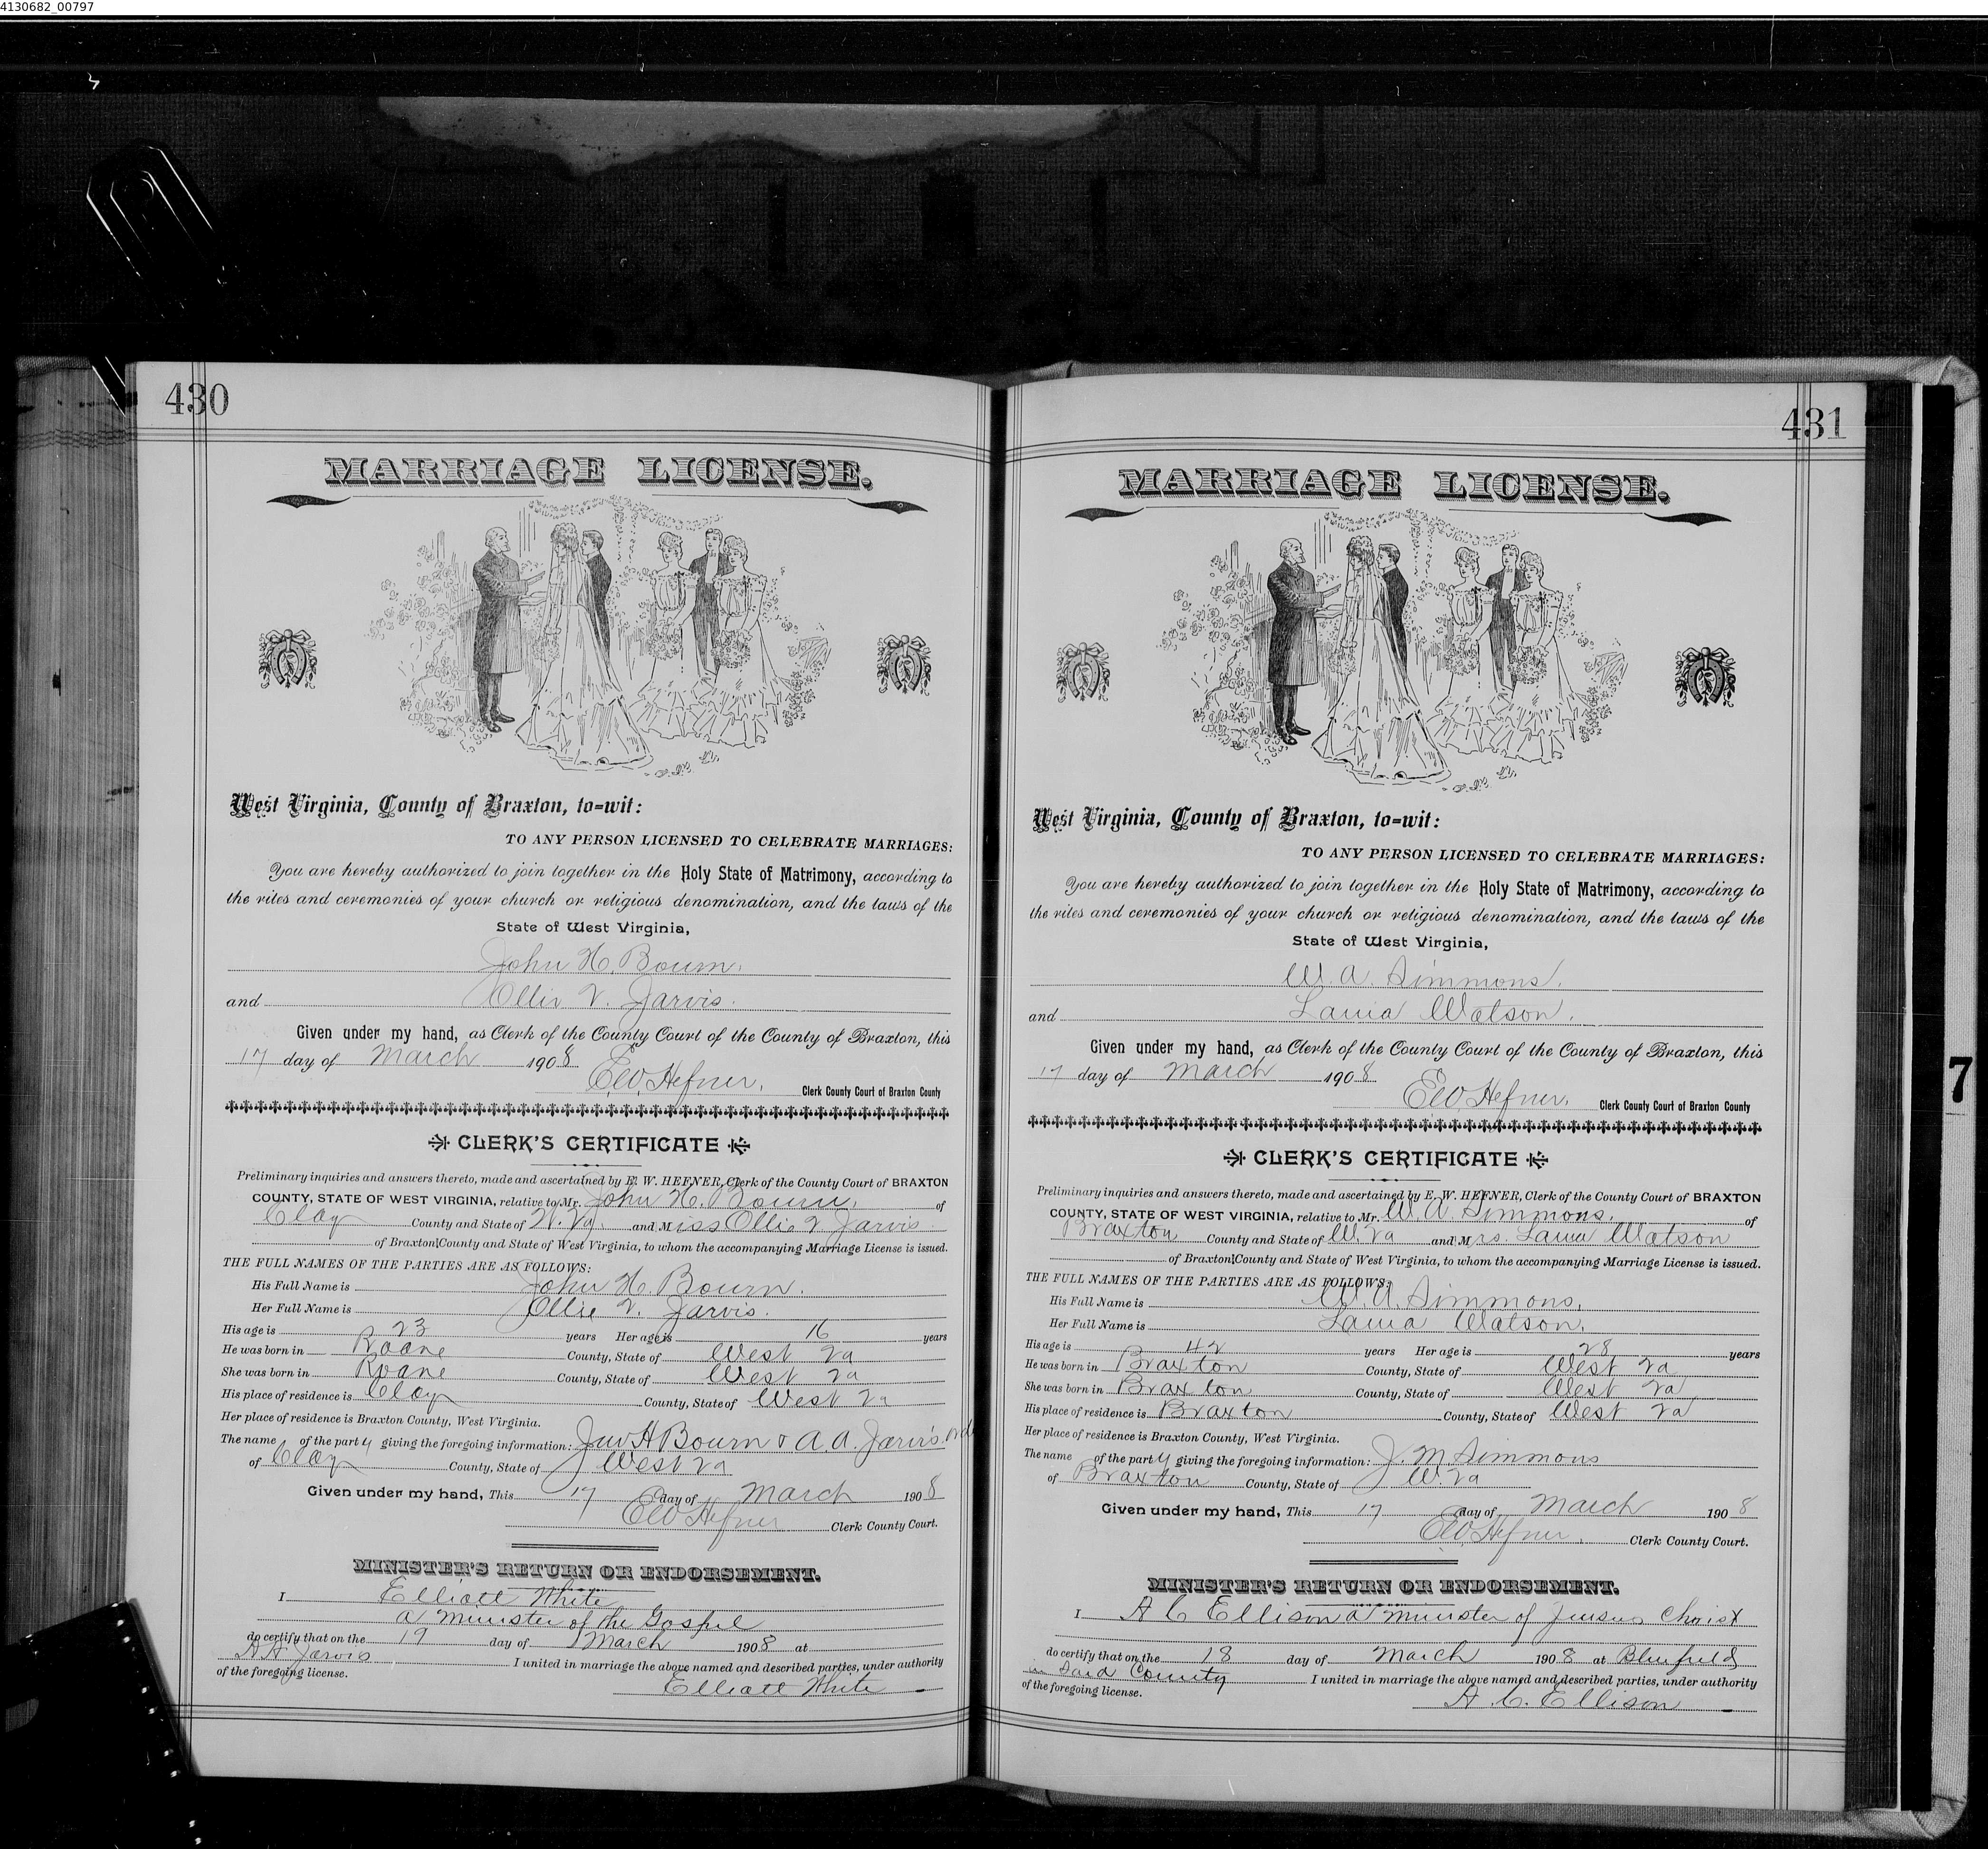 4130682_00797
430
MARRIAGE LICENSE.
West Virginia, County of Braxton, to=wit:
TO ANY PERSON LICENSED TO CELEBRATE MARRIAGES:
You are hereby authorized to join together in the Holy State of Matrimony, according to
the rites and ceremonies of your church or religious denomination, and the laws of the
State of West Virginia,
John H. Bourn.
and Ollie V. Jarvis.
Given under my hand, as Clerk of the County Court of the County of Braxton, this
17 day of March 1908
E.W. Hefner, Clerk County Court of Braxton County
CLERK'S CERTIFICATE
Preliminary inquiries and answers thereto, made and ascertained by E. W. HEFNER, Clerk of the County Court of BRAXTON
COUNTY, STATE OF WEST VIRGINIA, relative to Mr. John H. Bourn, of
Clay County and State of W. Va. and Miss Ollie V Jarvis
of Braxton County and State of West Virginia, to whom the accompanying Marriage License is issued.
THE FULL NAMES OF THE PARTIES ARE AS FOLLOWS:
His Full Name is John H. Bourn.
Her Full Name is Ollie V. Jarvis.
His age is 23 years Her age is 16 years
He was born in Roane County, State of West Va
She was born in Roane County, State of West Va
His place of residence is Clay County, State of West Va
Her place of residence is Braxton County, West Virginia.
The name of the party giving the foregoing information: Jno H Bourn & A. A. Jarvis.
of Clay County, State of West Va
Given under my hand, This 17 day of March 1908
E W Hefner Clerk County Court.
MINISTER'S RETURN OR ENDORSEMENT.
I Elliott White
a minister of the Gospel
do certify that on the 19 day of March 1908 at
A A Jarvis I united in marriage the above named and described parties, under authority
of the foregoing license.
Elliott White
431
MARRIAGE LICENSE.
West Virginia, County of Braxton, to=wit:
TO ANY PERSON LICENSED TO CELEBRATE MARRIAGES:
You are hereby authorized to join together in the Holy State of Matrimony, according to
the rites and ceremonies of your church or religious denomination, and the laws of the
State of West Virginia,
W. A. Simmons.
and Laura Watson.
Given under my hand, as Clerk of the County Court of the County of Braxton, this
17 day of March 1908
E.W. Hefner, Clerk County Court of Braxton County
CLERK'S CERTIFICATE
Preliminary inquiries and answers thereto, made and ascertained by E. W. HEFNER, Clerk of the County Court of BRAXTON
COUNTY, STATE OF WEST VIRGINIA, relative to Mr. W. A. Simmons, of
Braxton County and State of W. Va and Mrs. Laura Watson
of Braxton County and State of West Virginia, to whom the accompanying Marriage License is issued.
THE FULL NAMES OF THE PARTIES ARE AS FOLLOWS:
His Full Name is W. A. Simmons.
Her Full Name is Laura Watson.
His age is 42 years Her age is 28 years
He was born in Braxton County, State of West Va
She was born in Braxton County, State of West Va
His place of residence is Braxton County, State of West Va
Her place of residence is Braxton County, West Virginia.
The name of the party giving the foregoing information: J. M Simmons
of Braxton County, State of W. Va
Given under my hand, This 17 day of March 1908
E.W. Hefner. Clerk County Court.
MINISTER'S RETURN OR ENDORSEMENT.
I A C Ellison a minister of Jusus Christ
do certify that on the 18 day of March 1908 at Blufield
in Said County I united in marriage the above named and described parties, under authority
of the foregoing license.
A. C. Ellison
7